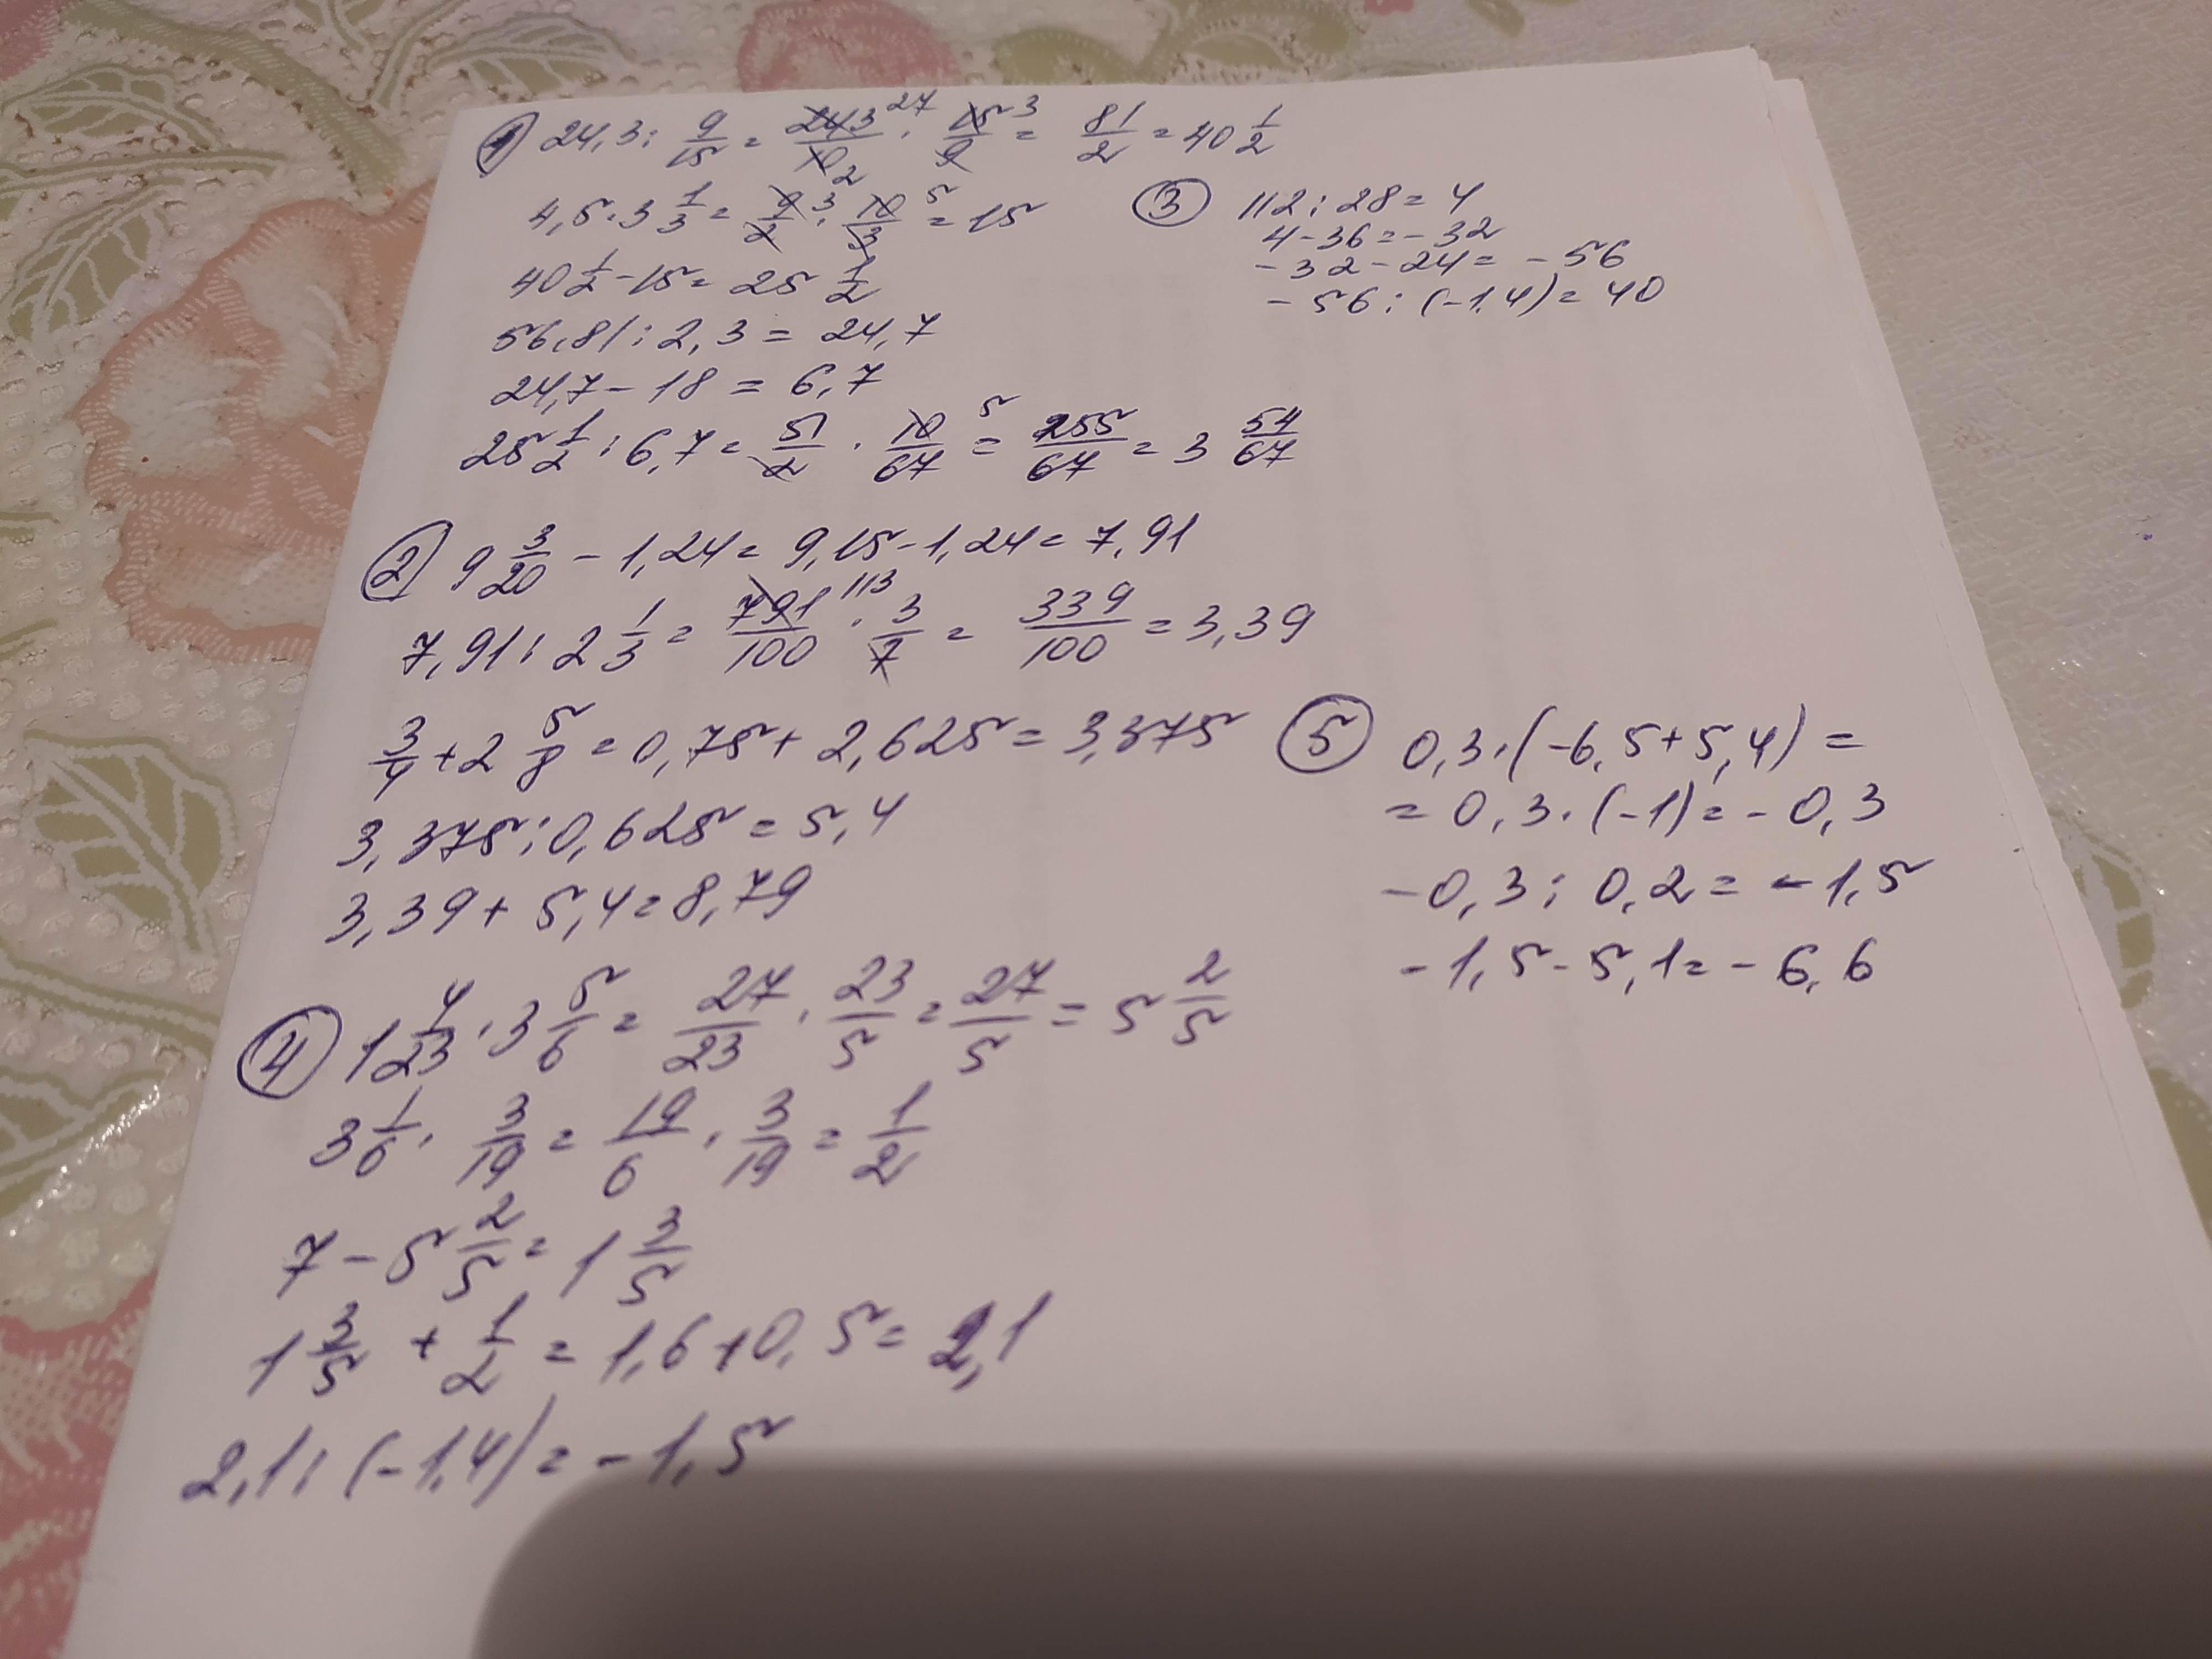 1) 24,3 : 9/15 = 243/10 27 2 · 15/9 3 = 81/2 = 40 1/2
4,5 · 3 1/3 = 9/2 3 · 10/3 5 = 15
40 1/2 - 15 = 25 1/2
56,81 : 2,3 = 24,7
24,7 - 18 = 6,7
25 1/2 : 6,7 = 51/2 · 10/67 5 = 255/67 = 3 54/67
3) 112 : 28 = 4
4 - 36 = - 32
- 32 - 24 = - 56
- 56 : (-1,4) = 40
2) 9 3/20 - 1,24 = 9,15 - 1,24 = 7,91
7,91 : 2 1/3 = 791/100 113 · 3/7 = 339/100 = 3,39
3/4 + 2 5/8 = 0,75 + 2,625 = 3,375
3,375 : 0,625 = 5,4
3,39 + 5,4 = 8,79
5) 0,3 · (-6,5 + 5,4) =
= 0,3 · (-1) = - 0,3
-0,3 : 0,2 = - 1,5
- 1,5 - 5,1 = - 6,6
4) 1 4/23 · 3 5/6 = 27/23 · 23/5 = 27/5 = 5 2/5
3 1/6 · 3/19 = 19/6 · 3/19 = 1/2
7 - 5 2/5 = 1 3/5
1 3/5 + 1/2 = 1,6 + 0,5 = 2,1
2,1 : (-1,4) = - 1,5